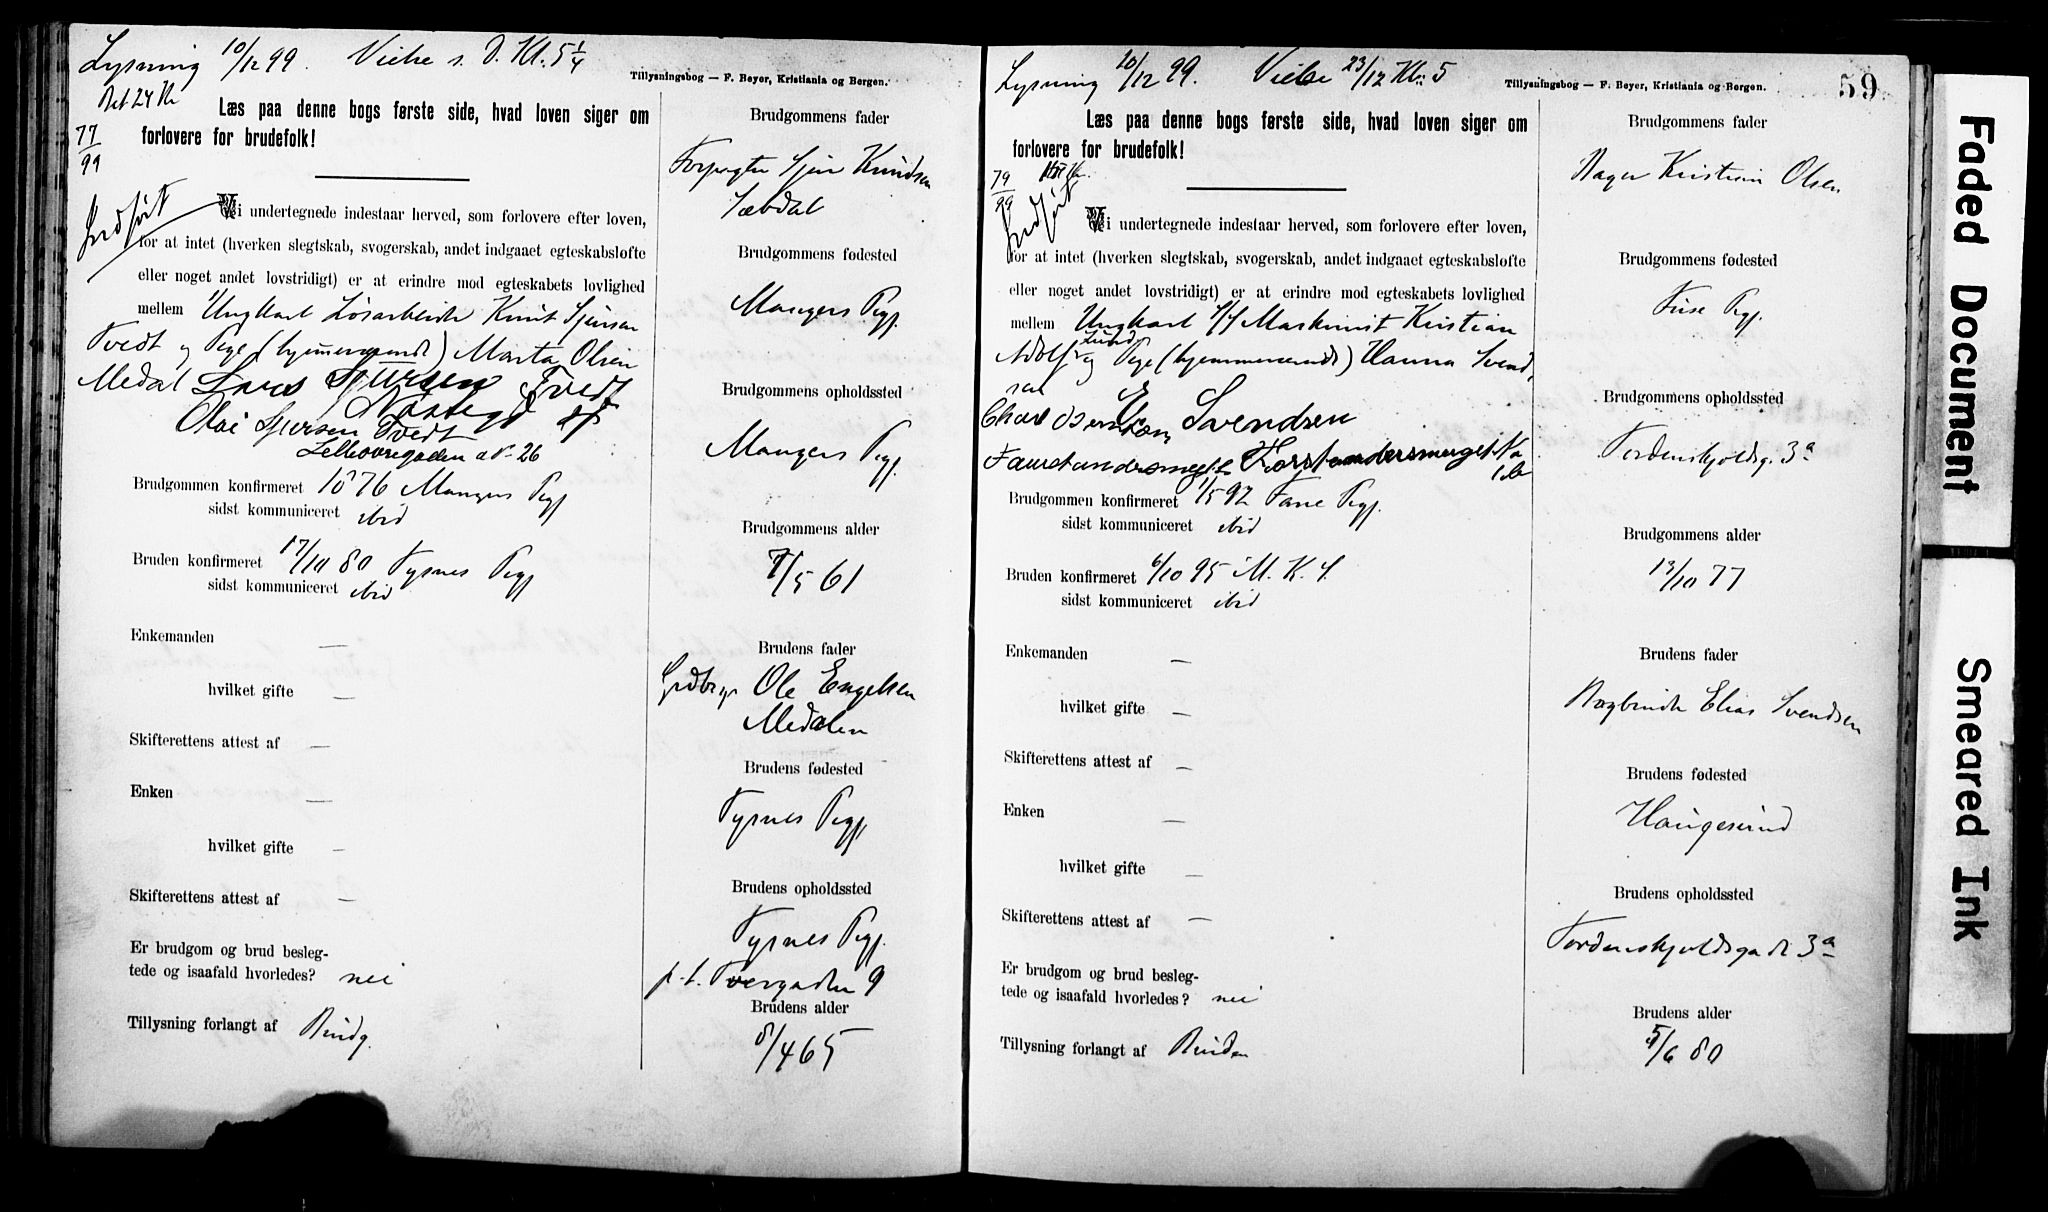 Lysning 10/12 99. Vielse s. D. Kl. 5 1/4
Tillysningsbog — F. Beyer, Kristiania og Bergen.
77/99
Læs paa denne bogs første side, hvad loven siger om
forlovere for brudefolk!
Indført
Vi undertegnede indestaar herved, som forlovere efter loven,
for at intet (hverken slegtskab, svogerskab, andet indgaaet egteskabsløfte
eller noget andet lovstridigt) er at erindre mod egteskabets lovlighed
mellem Ungkarl Løsarbeider Knut Sjursen
Tvedt og Pige (hjemmeværende) Marta Olsen
Medal Lars Sjursen Tvedt
Nøstegd
Olai Sjursen Tvedt
26
Brudgommen konfirmeret 1876 Mangers Pgj
sidst kommuniceret ibid
Bruden konfirmeret 17/10 80 Tysnes Pgj
sidst kommuniceret ibid
Enkemanden —
hvilket gifte —
Skifterettens attest af —
Enken —
hvilket gifte —
Skifterettens attest af —
Er brudgom og brud besleg-
tede og isaafald hvorledes? nei
Tillysning forlangt af Brudg.
Brudgommens fader
Forpagter Sjur Knudsen
Sæbdal
Brudgommens fødested
Mangers Pgj.
Brudgommens opholdssted
Mangers Pgj.
Brudgommens alder
7/5 61
Brudens fader
Grdbrgr Ole Engelsen
Medalen
Brudens fødested
Tysnes Pgj.
Brudens opholdssted
Tysnes Pgj.
p.t. Tvergaden 9
Brudens alder
8/4 65
Lysning 10/12 99. Vielse 23/12 Kl. 5
Tillysningsbog — F. Beyer, Kristiania og Bergen.
59
79/99
Læs paa denne bogs første side, hvad loven siger om
forlovere for brudefolk!
Indført
Vi undertegnede indestaar herved, som forlovere efter loven,
for at intet (hverken slegtskab, svogerskab, andet indgaaet egteskabsløfte
eller noget andet lovstridigt) er at erindre mod egteskabets lovlighed
mellem Ungkarl Maskinist Kristian
Adolf Lund og Pige (hjemmeværende) Hanna Svend-
sen
E. Svendsen
Forstandersmuget
Brudgommen konfirmeret 1/5 92 Fane Pgj.
sidst kommuniceret ibid
Bruden konfirmeret 6/10 95 M. K. S.
sidst kommuniceret ibid
Enkemanden —
hvilket gifte —
Skifterettens attest af —
Enken —
hvilket gifte —
Skifterettens attest af —
Er brudgom og brud besleg-
tede og isaafald hvorledes? nei
Tillysning forlangt af Bruden
Brudgommens fader
Bager Kristian Olsen
Brudgommens fødested
Fuse Pgj.
Brudgommens opholdssted
Tordenskjoldsg. 3a
Brudgommens alder
13/10 77
Brudens fader
Bogbinder Elias Svendsen
Brudens fødested
Haugesund
Brudens opholdssted
Tordenskjoldsgade 3a
Brudens alder
5/6 80
Faded Document
Smeared Ink